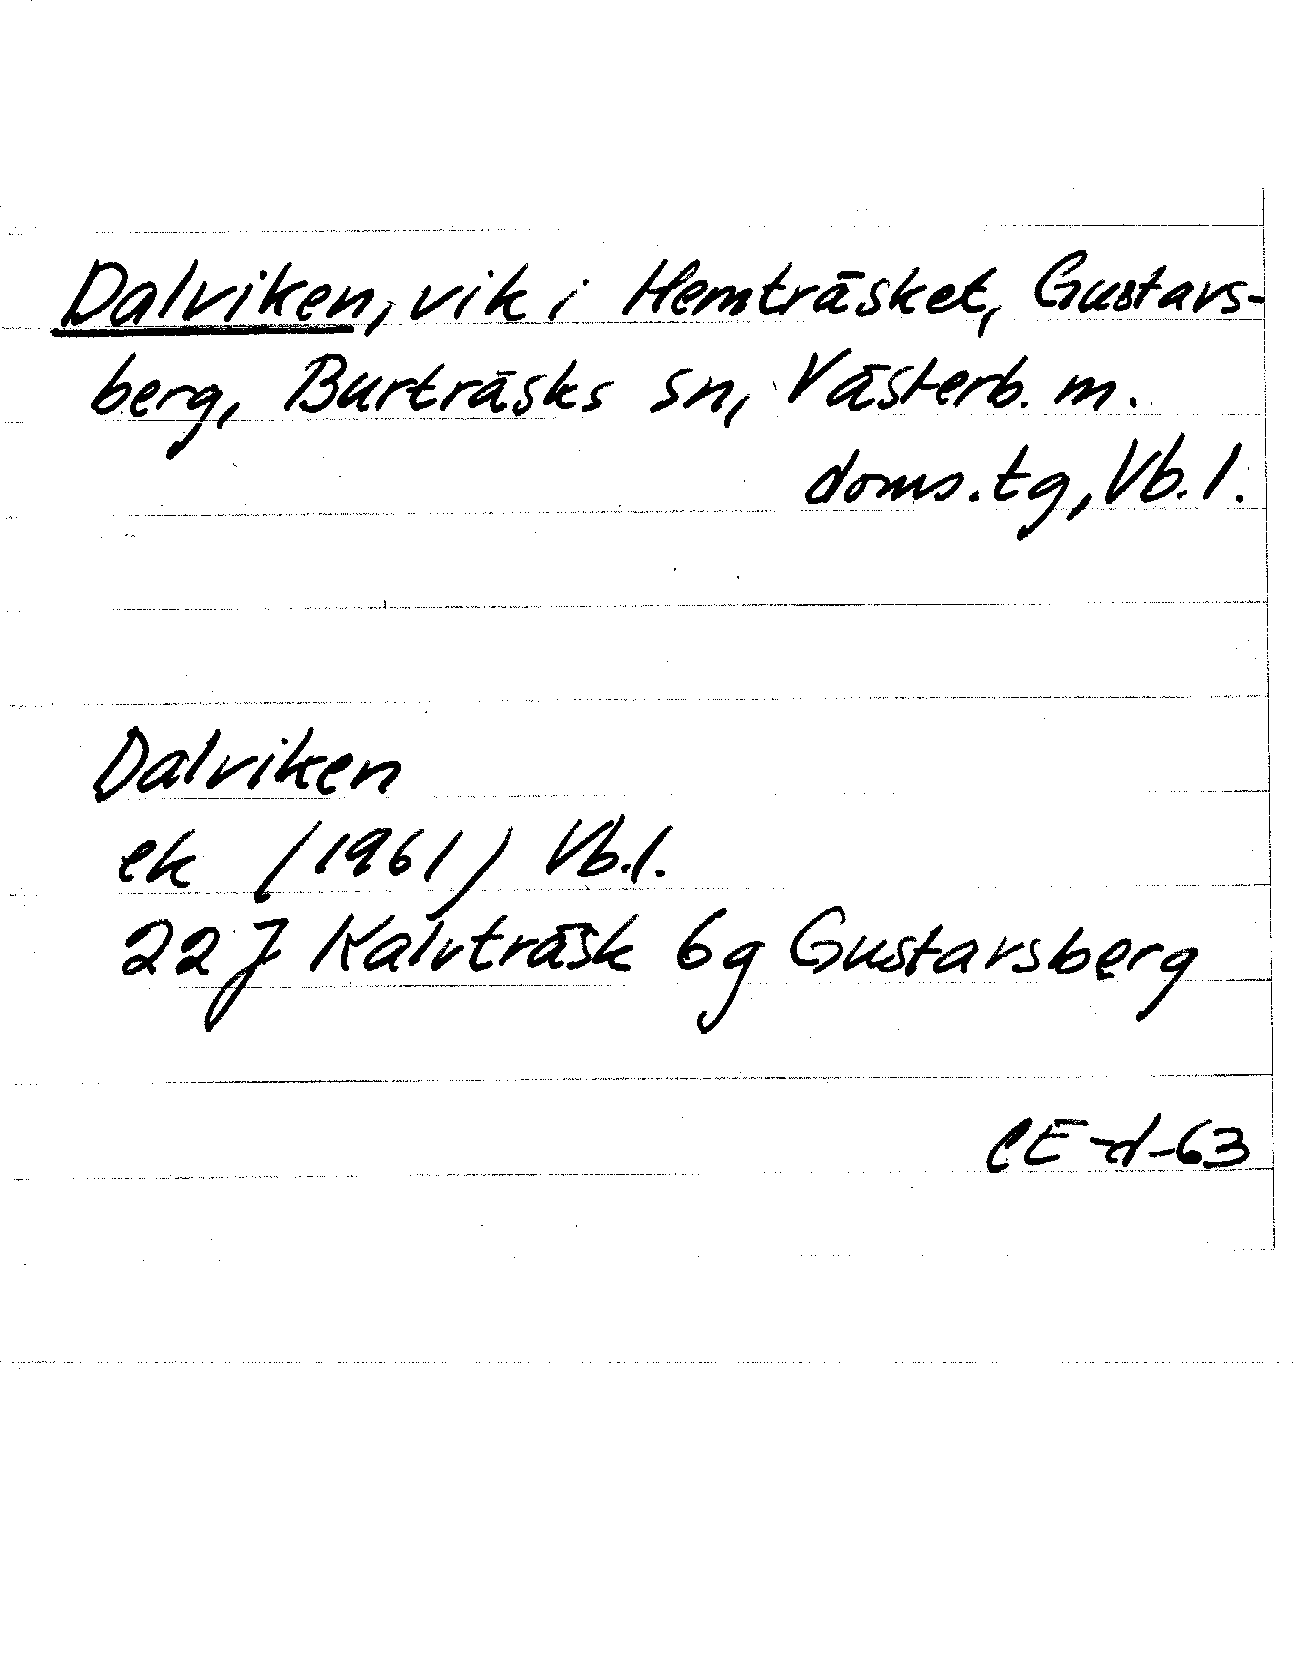 Dalviken, vik i Hemträsket, Gustavs-
berg, Burträsks sn, Västerb. m.
doms. tg, Vb. l.
Dalviken
ek (1961) Vb.l.
22 J Kalvträsk 6g Gustavsberg
CE-d-63